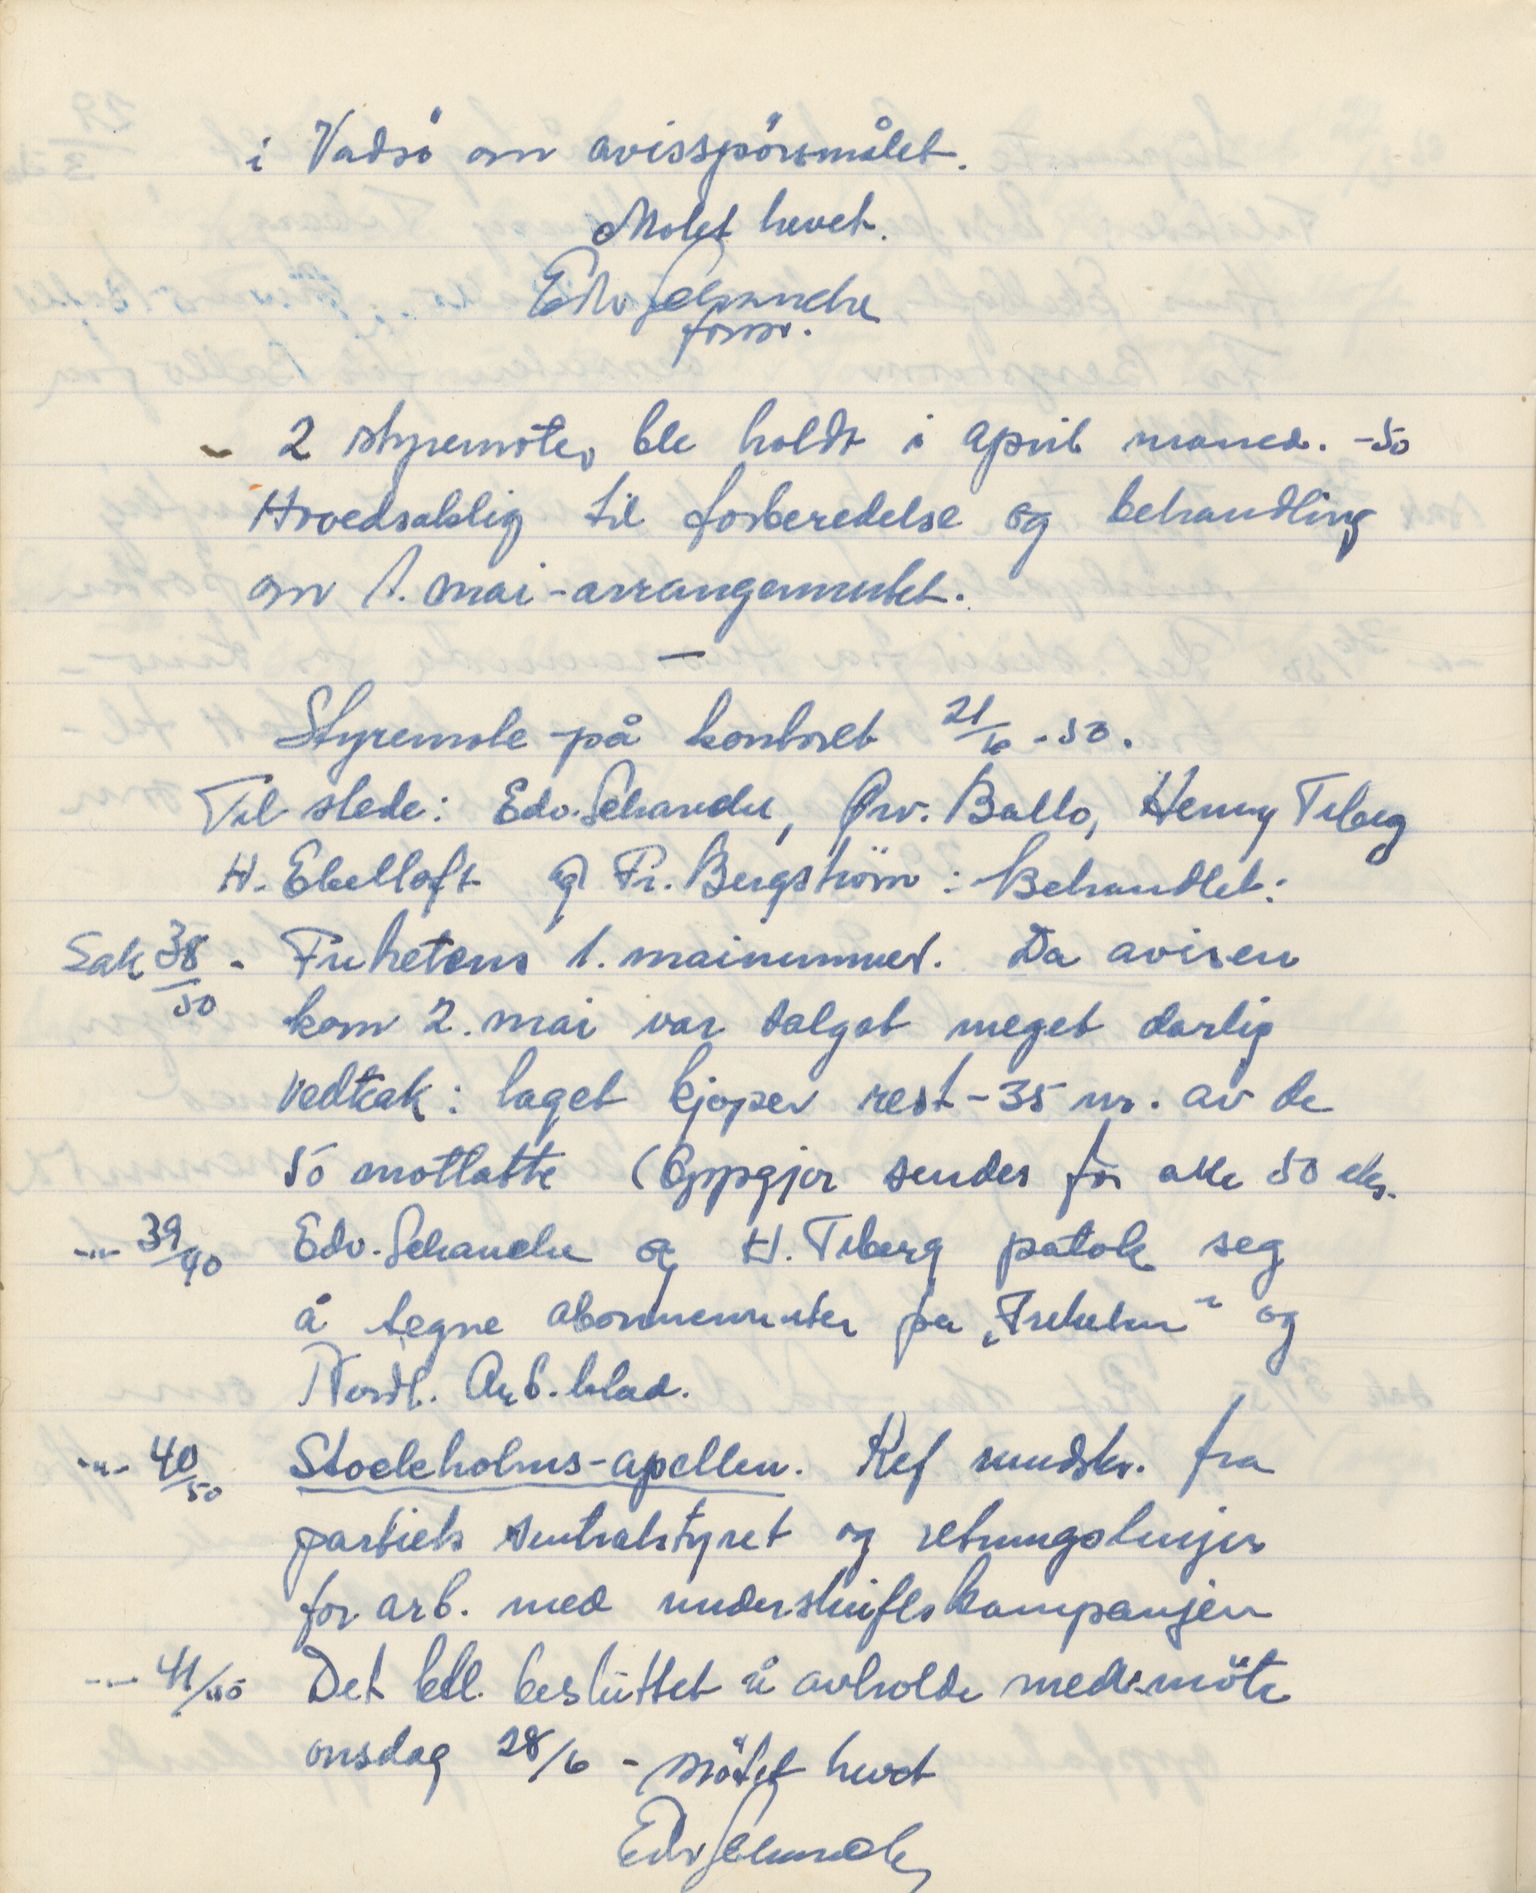 i Vadsö om avisspörsmålet.
Motet hevet.
Edv Schancke
form.
- 2 styremoter ble holdt i april maned. -50
Hovedsaklig til forberedelse og behandling
om 1. mai-arrangementet.
—
Styremote på kontoret 21/6 -50.
Til stede: Edv. Schancke, Ørv. Ballo, Henny Tiberg
H. Ekelloft og Fr. Bergström: Behandlet:
Sak 38/50 - Frihetens 1. mainummer. Da avisen
kom 2. mai var salget meget darlig
Vedtak: laget kjoper rest-35 nr. av de
50 mottatte (Oppgjor sendes for alle 50 eks.
-"- 39/40 Edv. Schancke og H. Tiberg patok seg
å tegne abonnementer pa „Friheten" og
Nordl. Arb.blad.
-"- 40/50 Stockholms-apellen. Ref rundskr. fra
partiets sentralstyret og retningslinjer
for arb. med underskriftskampanjen
-"- 41/50 Det ble besluttet å avholde medl.möte
onsdag 28/6 - mötet hevet
Edv Schancke